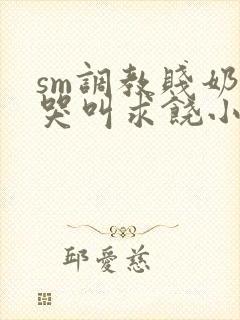 sm調教賤奶
哭叫求饒小
邱愛慈